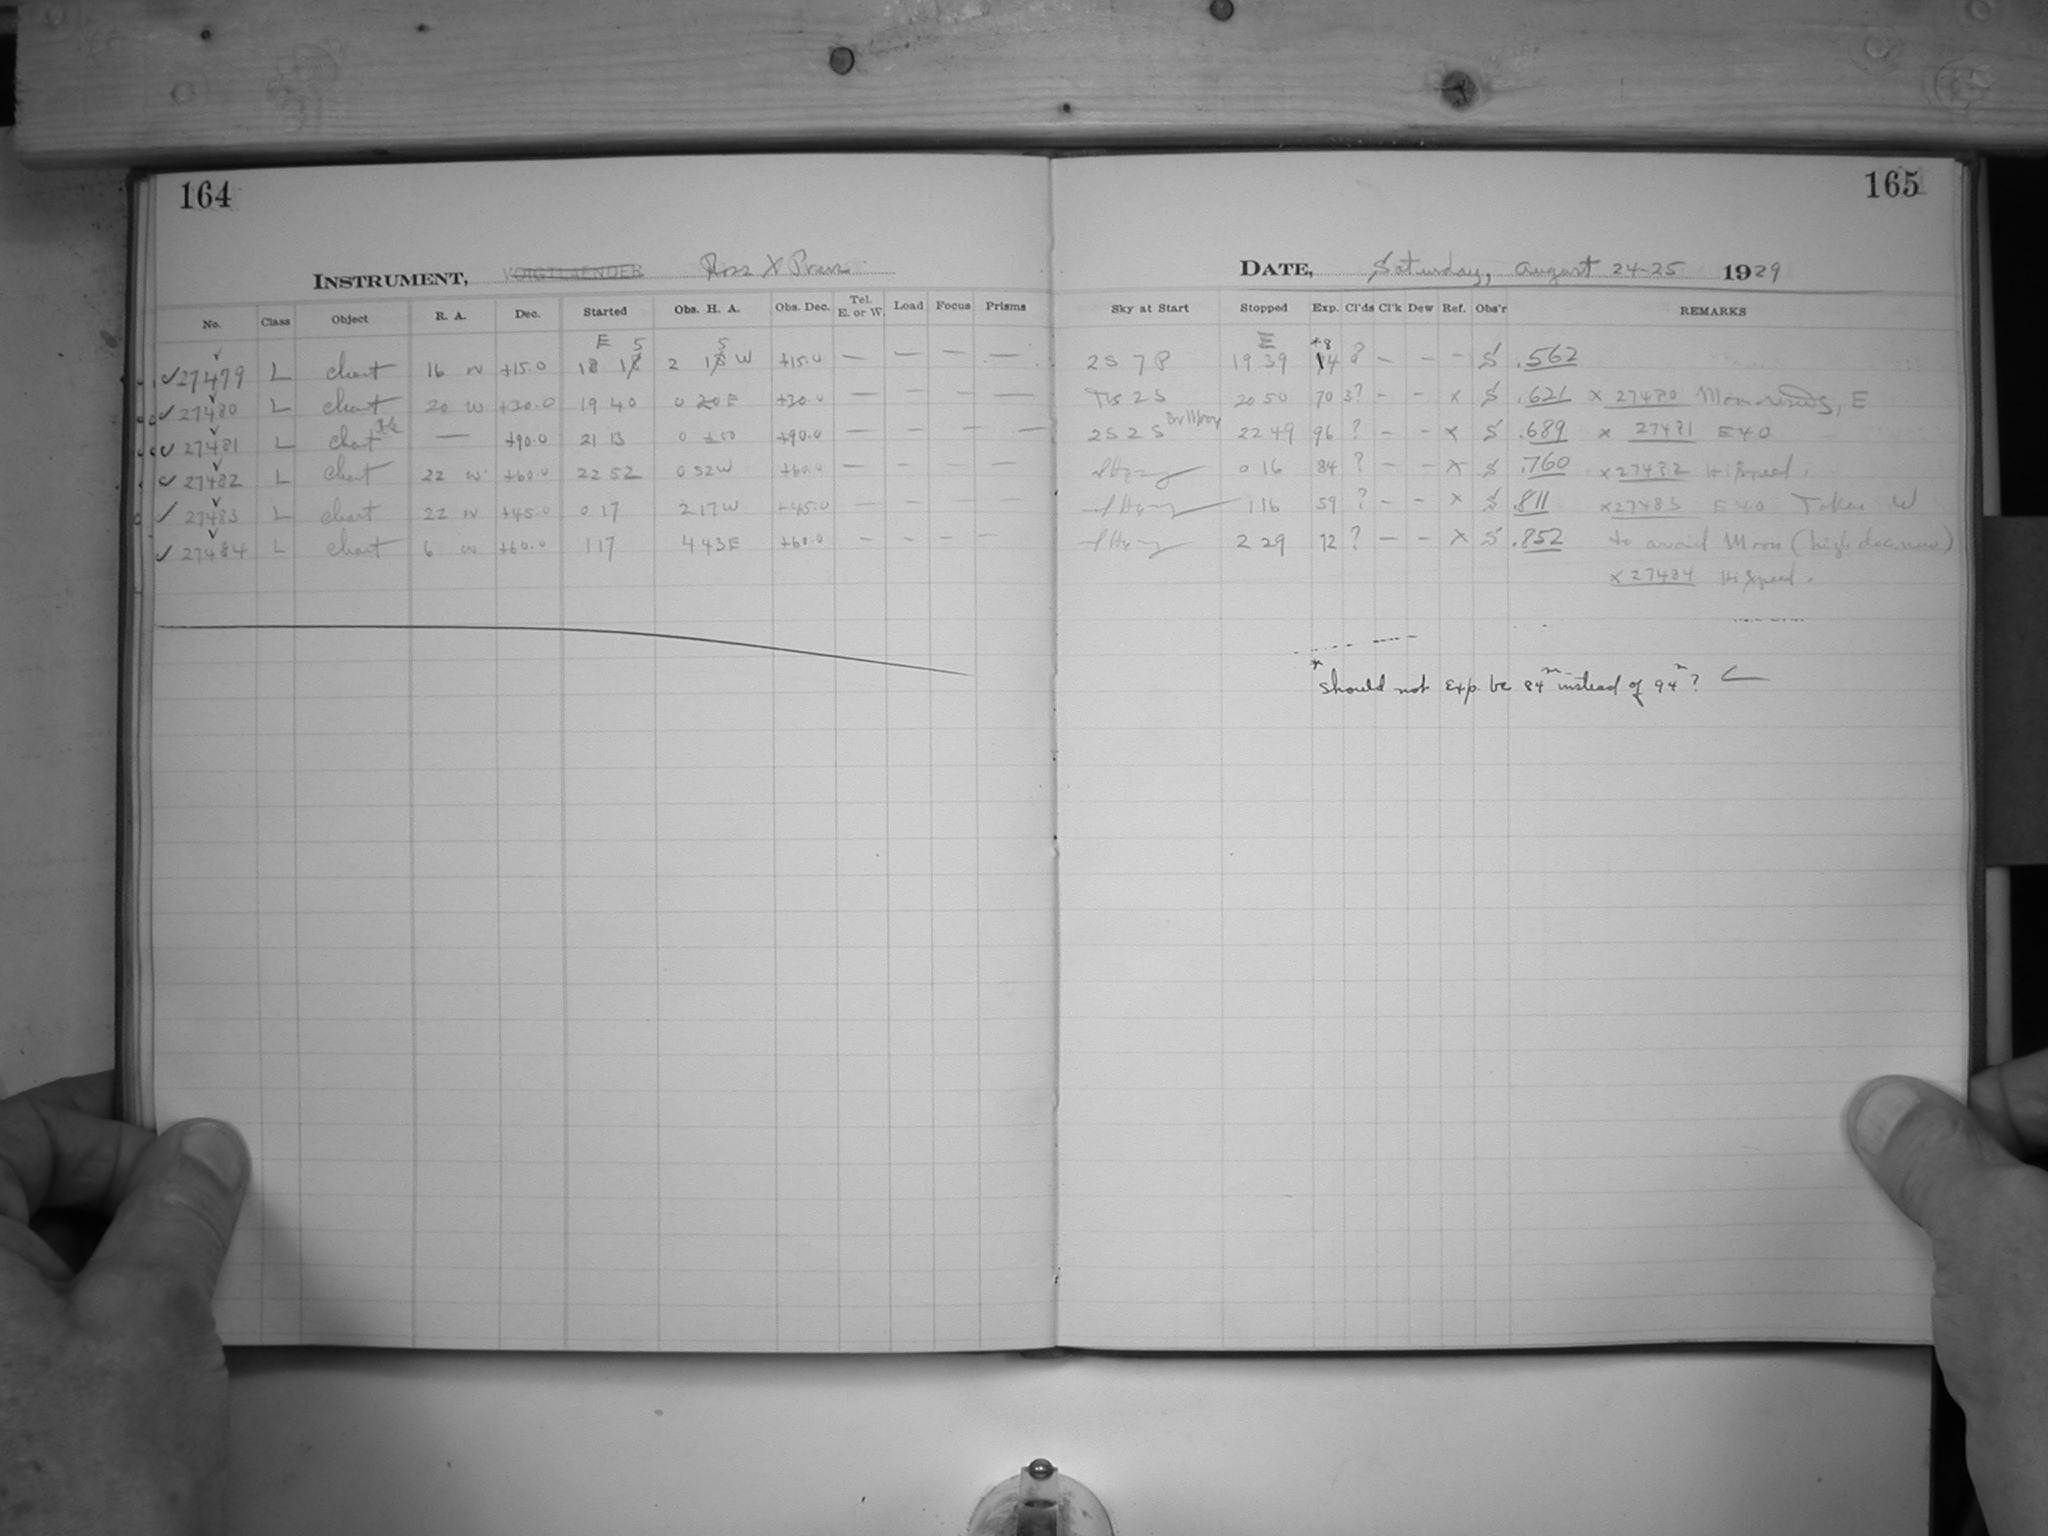 164
165
INSTRUMENT, VOIGTLAENDER Ross X Press
DATE, Saturday, August 24-25 1929
No. Class Object R. A. Dec. Started Obs. H. A. Obs. Dec. Tel. E. or W. Load Focus Prisms Sky at Start Stopped Exp. Cl'ds Cl'k Dew Ref. Obs'r REMARKS
27479 L chart 16 +15.0 2 W +15.0 — — — — 2S 7P 19 39 ? — — — S .562
27480 L chart 20 +30.0 19 40 0 20 E +30.0 — — — — 2S 20 50 70 3? — — x S .621 x 27480 Moon rising, E
27481 L chart — +90.0 21 13 0 +90.0 — — — — 2S 2S 22 49 96 ? — — x S .689 x 27481 E40
27482 L chart 22 +60.0 22 52 0 52 W +60.0 — — — — 0 16 84 ? — — x S .760 x 27482 Hi Speed.
27483 L chart 22 +45.0 0 17 2 17 W +45.0 — — — — 1 16 59 ? — — x S .811 x 27483 E40 Taken W
27484 L chart 6 +60.0 1 17 4 43 E +60.0 — — — — 2 29 72 ? — — x S .852 to avoid Moon (high dec. now)
x 27484 Hi Speed.
* should not Exp. be 84m instead of 94m?